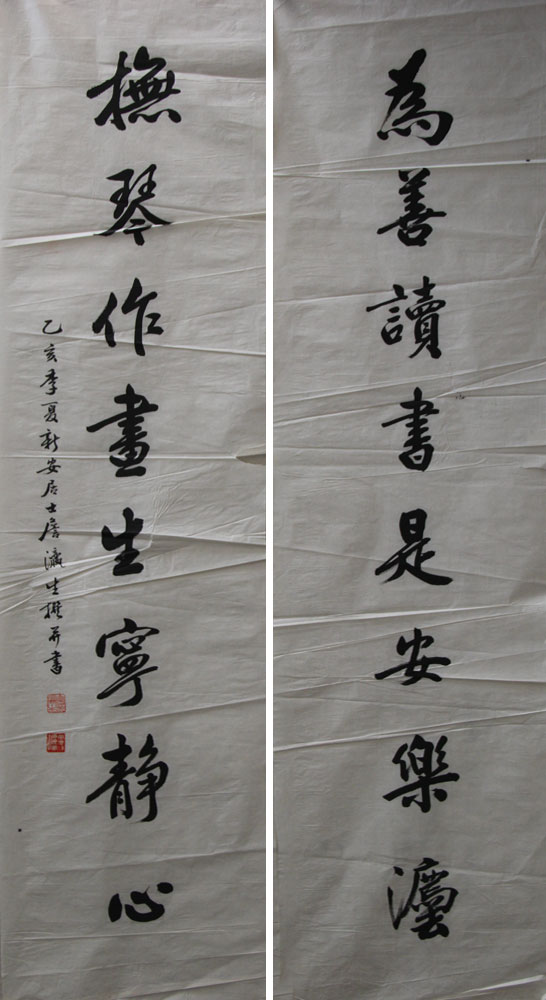 為善讀書是安樂灋
撫琴作畫生寧靜心
乙亥季夏新安居士詹瀛生撰并書